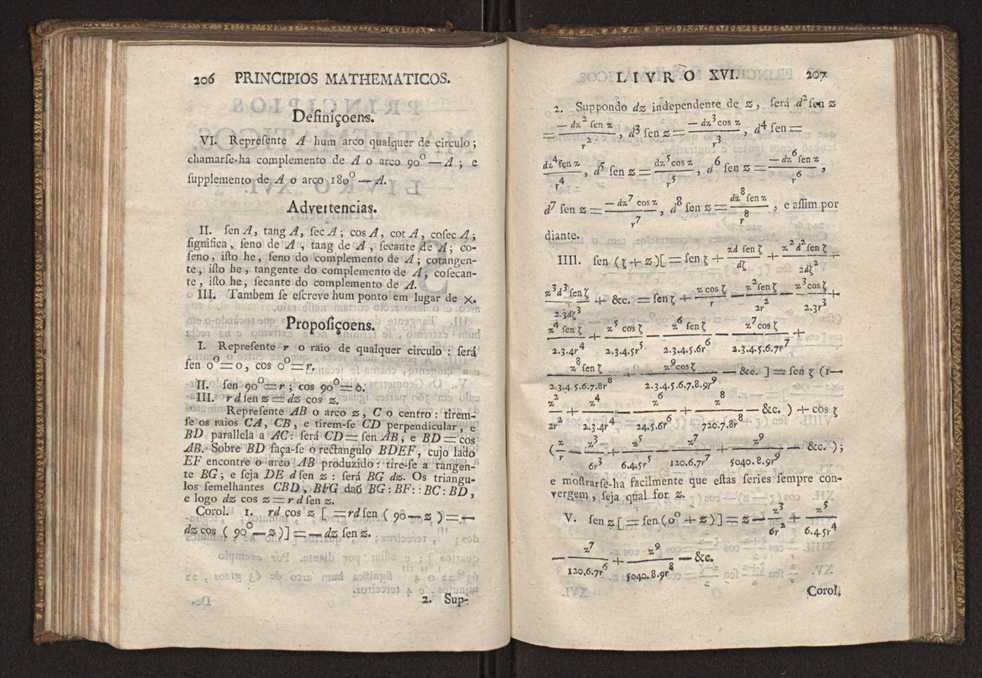 206 PRINCIPIOS MATHEMATICOS.
Definiçoens.
VI. Repreſente A hum arco qualquer de circulo ;
chamarſe-ha complemento de A o arco 90⁰ — A ; e
ſupplemento de A o arco 180⁰ — A.
Advertencias.
II. ſen A, tang A, ſec A ; cos A, cot A, coſec A ;
ſignifica , ſeno de A , tang de A , ſecante de A ; co-
ſeno, iſto he , ſeno do complemento de A ; cotangen-
te , iſto he , tangente do complemento de A ; coſecan-
te , iſto he , ſecante do complemento de A.
III. Tambem ſe eſcreve hum ponto em lugar de ×.
Propoſiçoens.
I. Repreſente r o raio de qualquer circulo : ſerá
ſen 0⁰ = 0, cos 0⁰ = r.
II. ſen 90⁰ = r ; cos 90⁰ = 0.
III. r d ſen z = dz cos z.
Repreſente AB o arco z , C o centro : tirem-
ſe os raios CA, CB , e tirem-ſe CD perpendicular , e
BD parallela a AC : ſerá CD = ſen AB, e BD = cos
AB. Sobre BD faça-ſe o rectangulo BDEF, cujo lado
EF encontre o arco AB produzido : tire-ſe a tangen-
te BG ; e ſeja DE d ſen z : ſerá BG dz. Os triangu-
los ſemelhantes CBD, BFG daõ BG : BF : : BC : BD ,
e logo dz cos z = r d ſen z.
Corol. 1. rd cos z [ = rd ſen ( 90 — z ) = —
dz cos ( 90⁰ — z )] = — dz ſen z.
2. Sup-
LIVRO XVI. 207
2. Suppondo dz independente de z , ſerá d² ſen z
= — dz² ſen z / r² , d³ ſen z = — dz³ cos z / r³ , d⁴ ſen =
dz⁴ ſen z / r⁴ , d⁵ ſen z = dz⁵ cos z / r⁵ , d⁶ ſen z = — dz⁶ ſen z / r⁶ ,
d⁷ ſen z = — dz⁷ cos z / r⁷ , d⁸ ſen z = dz⁸ ſen z / r⁸ , e aſſim por
diante.
IIII. ſen (ζ + z) [ = ſen ζ + zd ſen ζ / dζ + z²d² ſen ζ / 2dζ² +
z³d³ ſen ζ / 2.3dζ³ + &c. = ſen ζ + z cos ζ / r — z² ſen ζ / 2r² — z³ cos ζ / 2.3r³ +
z⁴ ſen ζ / 2.3.4r⁴ + z⁵ cos ζ / 2.3.4.5r⁵ — z⁶ ſen ζ / 2.3.4.5.6r⁶ — z⁷ cos ζ / 2.3.4.5.6.7r⁷ +
z⁸ ſen ζ / 2.3.4.5.6.7.8r⁸ + z⁹ cos ζ / 2.3.4.5.6.7.8.9r⁹ — &c. ] = ſen ζ (1 —
z² / 2r² + z⁴ / 2.3.4r⁴ — z⁶ / 24.5.6r⁶ + z⁸ / 720.7.8r⁸ — &c. ) + cos ζ
( z / r — z³ / 6r³ + z⁵ / 6.4.5r⁵ — z⁷ / 120.6.7r⁷ + z⁹ / 5040.8.9r⁹ — &c. ) ;
e moſtrarſe-ha facilmente que eſtas ſeries ſempre con-
vergem , ſeja qual for z.
V. ſen z [ = ſen (0⁰ + z)] = z — z³ / 6r² + z⁵ / 6.4.5r⁴
— z⁷ / 120.6.7r⁶ + z⁹ / 5040.8.9r⁸ — &c.
Corol.